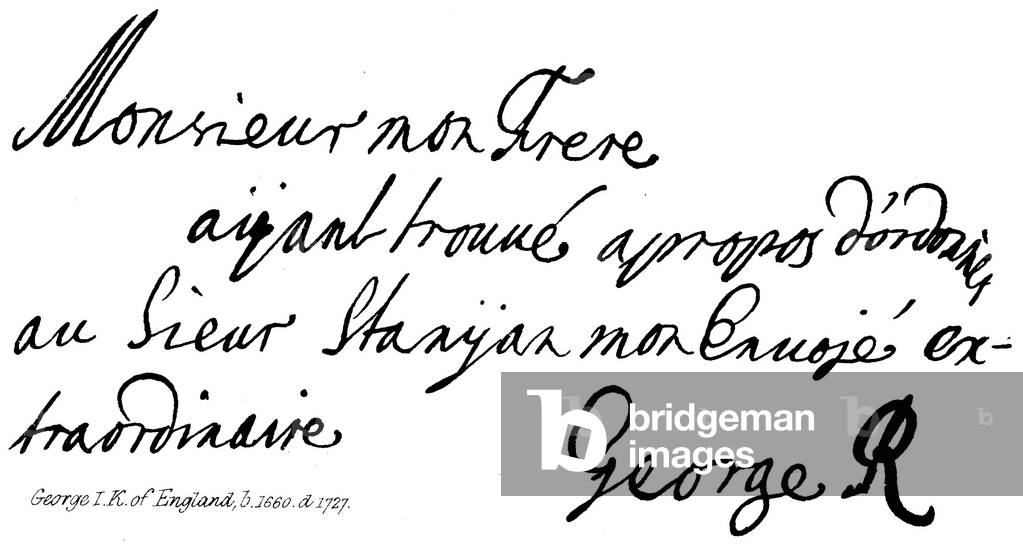 Monsieur mon Frere
aÿant trouué apropos d'ordonner
au Sieur Stanÿan mon Enuojé ex-
traordinaire
George R
George I. K. of England, b. 1660. d 1727.
bridgeman
images
b
b
b
b